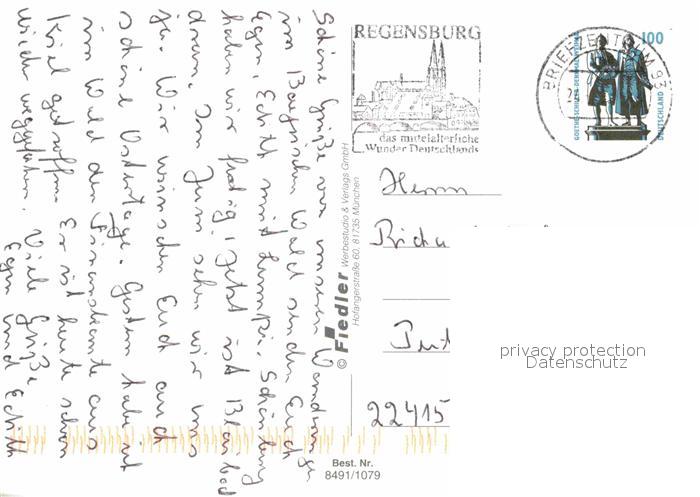 Schöne Grüße von unseren Wanderungen
im Bayrischen Wald senden Euch
Egon, Edith mit Lumpi. Schönberg
haben wir fertig, jetzt ist
dran. Im Juni sehen wir uns
ja. Wir wünschen Euch auch
schöne Ostertage. Gestern haben wir
im Wald den aus
Kiel getroffen. Er ist heute schon
wieder weggefahren. Viele Grüße
Egon und Edith
REGENSBURG
das mittelalterliche
Wunder Deutschlands
BRIEFZENTRUM 93
100
GOETHE-SCHILLER-DENKMAL WEIMAR
DEUTSCHLAND
Herrn
Richa
22415
© Fiedler Werbestudio & Verlags GmbH
Hofangerstraße 60, 81735 München
Best. Nr.
8491/1079
privacy protection
Datenschutz